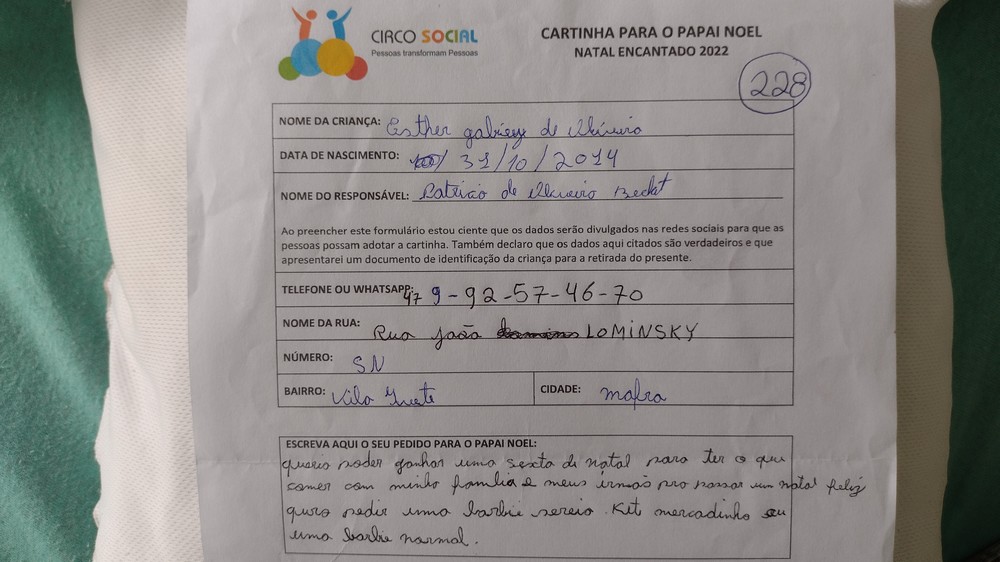 CIRCO SOCIAL
Pessoas transformam Pessoas
CARTINHA PARA O PAPAI NOEL
NATAL ENCANTADO 2022
228
NOME DA CRIANÇA: Esther de Oliveira
DATA DE NASCIMENTO: 31/10/2014
NOME DO RESPONSÁVEL: de Oliveira
Ao preencher este formulário estou ciente que os dados serão divulgados nas redes sociais para que as
pessoas possam adotar a cartinha. Também declaro que os dados aqui citados são verdadeiros e que
apresentarei um documento de identificação da criança para a retirada do presente.
TELEFONE OU WHATSAPP: 47 9-92-57-46-70
NOME DA RUA: Rua João LOMINSKY
NÚMERO: SN
BAIRRO: Vila Ivete CIDADE: mafra
ESCREVA AQUI O SEU PEDIDO PARA O PAPAI NOEL:
queria poder ganhar uma sexta di natal para ter o que
comer com minha familia e meus irmãs pra passar um natal feliz
quro pedir uma barbie sereia. Kit mercadinho ou
uma barbie normal.